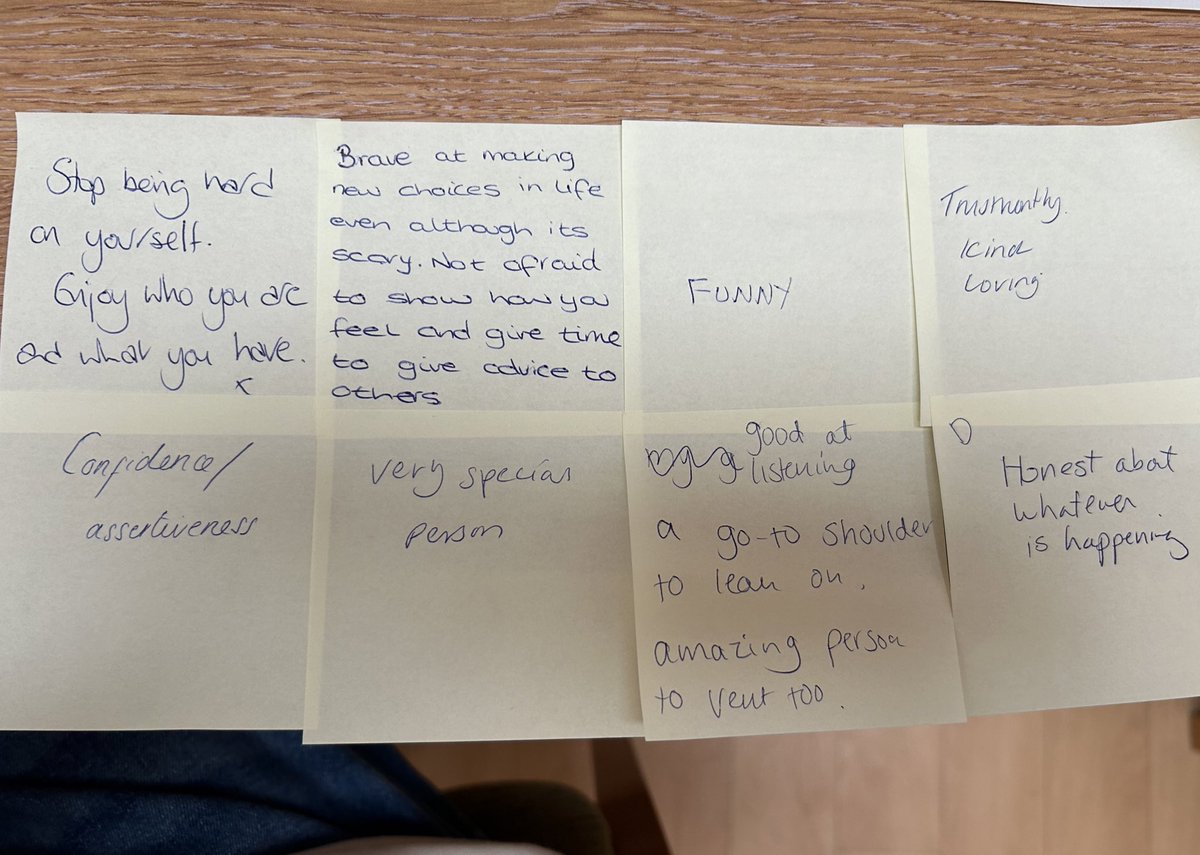 Stop being hard
on yourself.
Enjoy who you are
and what you have.
x
Brave at making
new choices in life
even although its
scary. Not afraid
to show how you
feel and give time
to give advice to
others
FUNNY
Kind
Loving
Confidence/
assertiveness
very special
person
good at
listening
a go-to shoulder
to lean on.
amazing person
to vent too.
Honest about
whatever
is happening